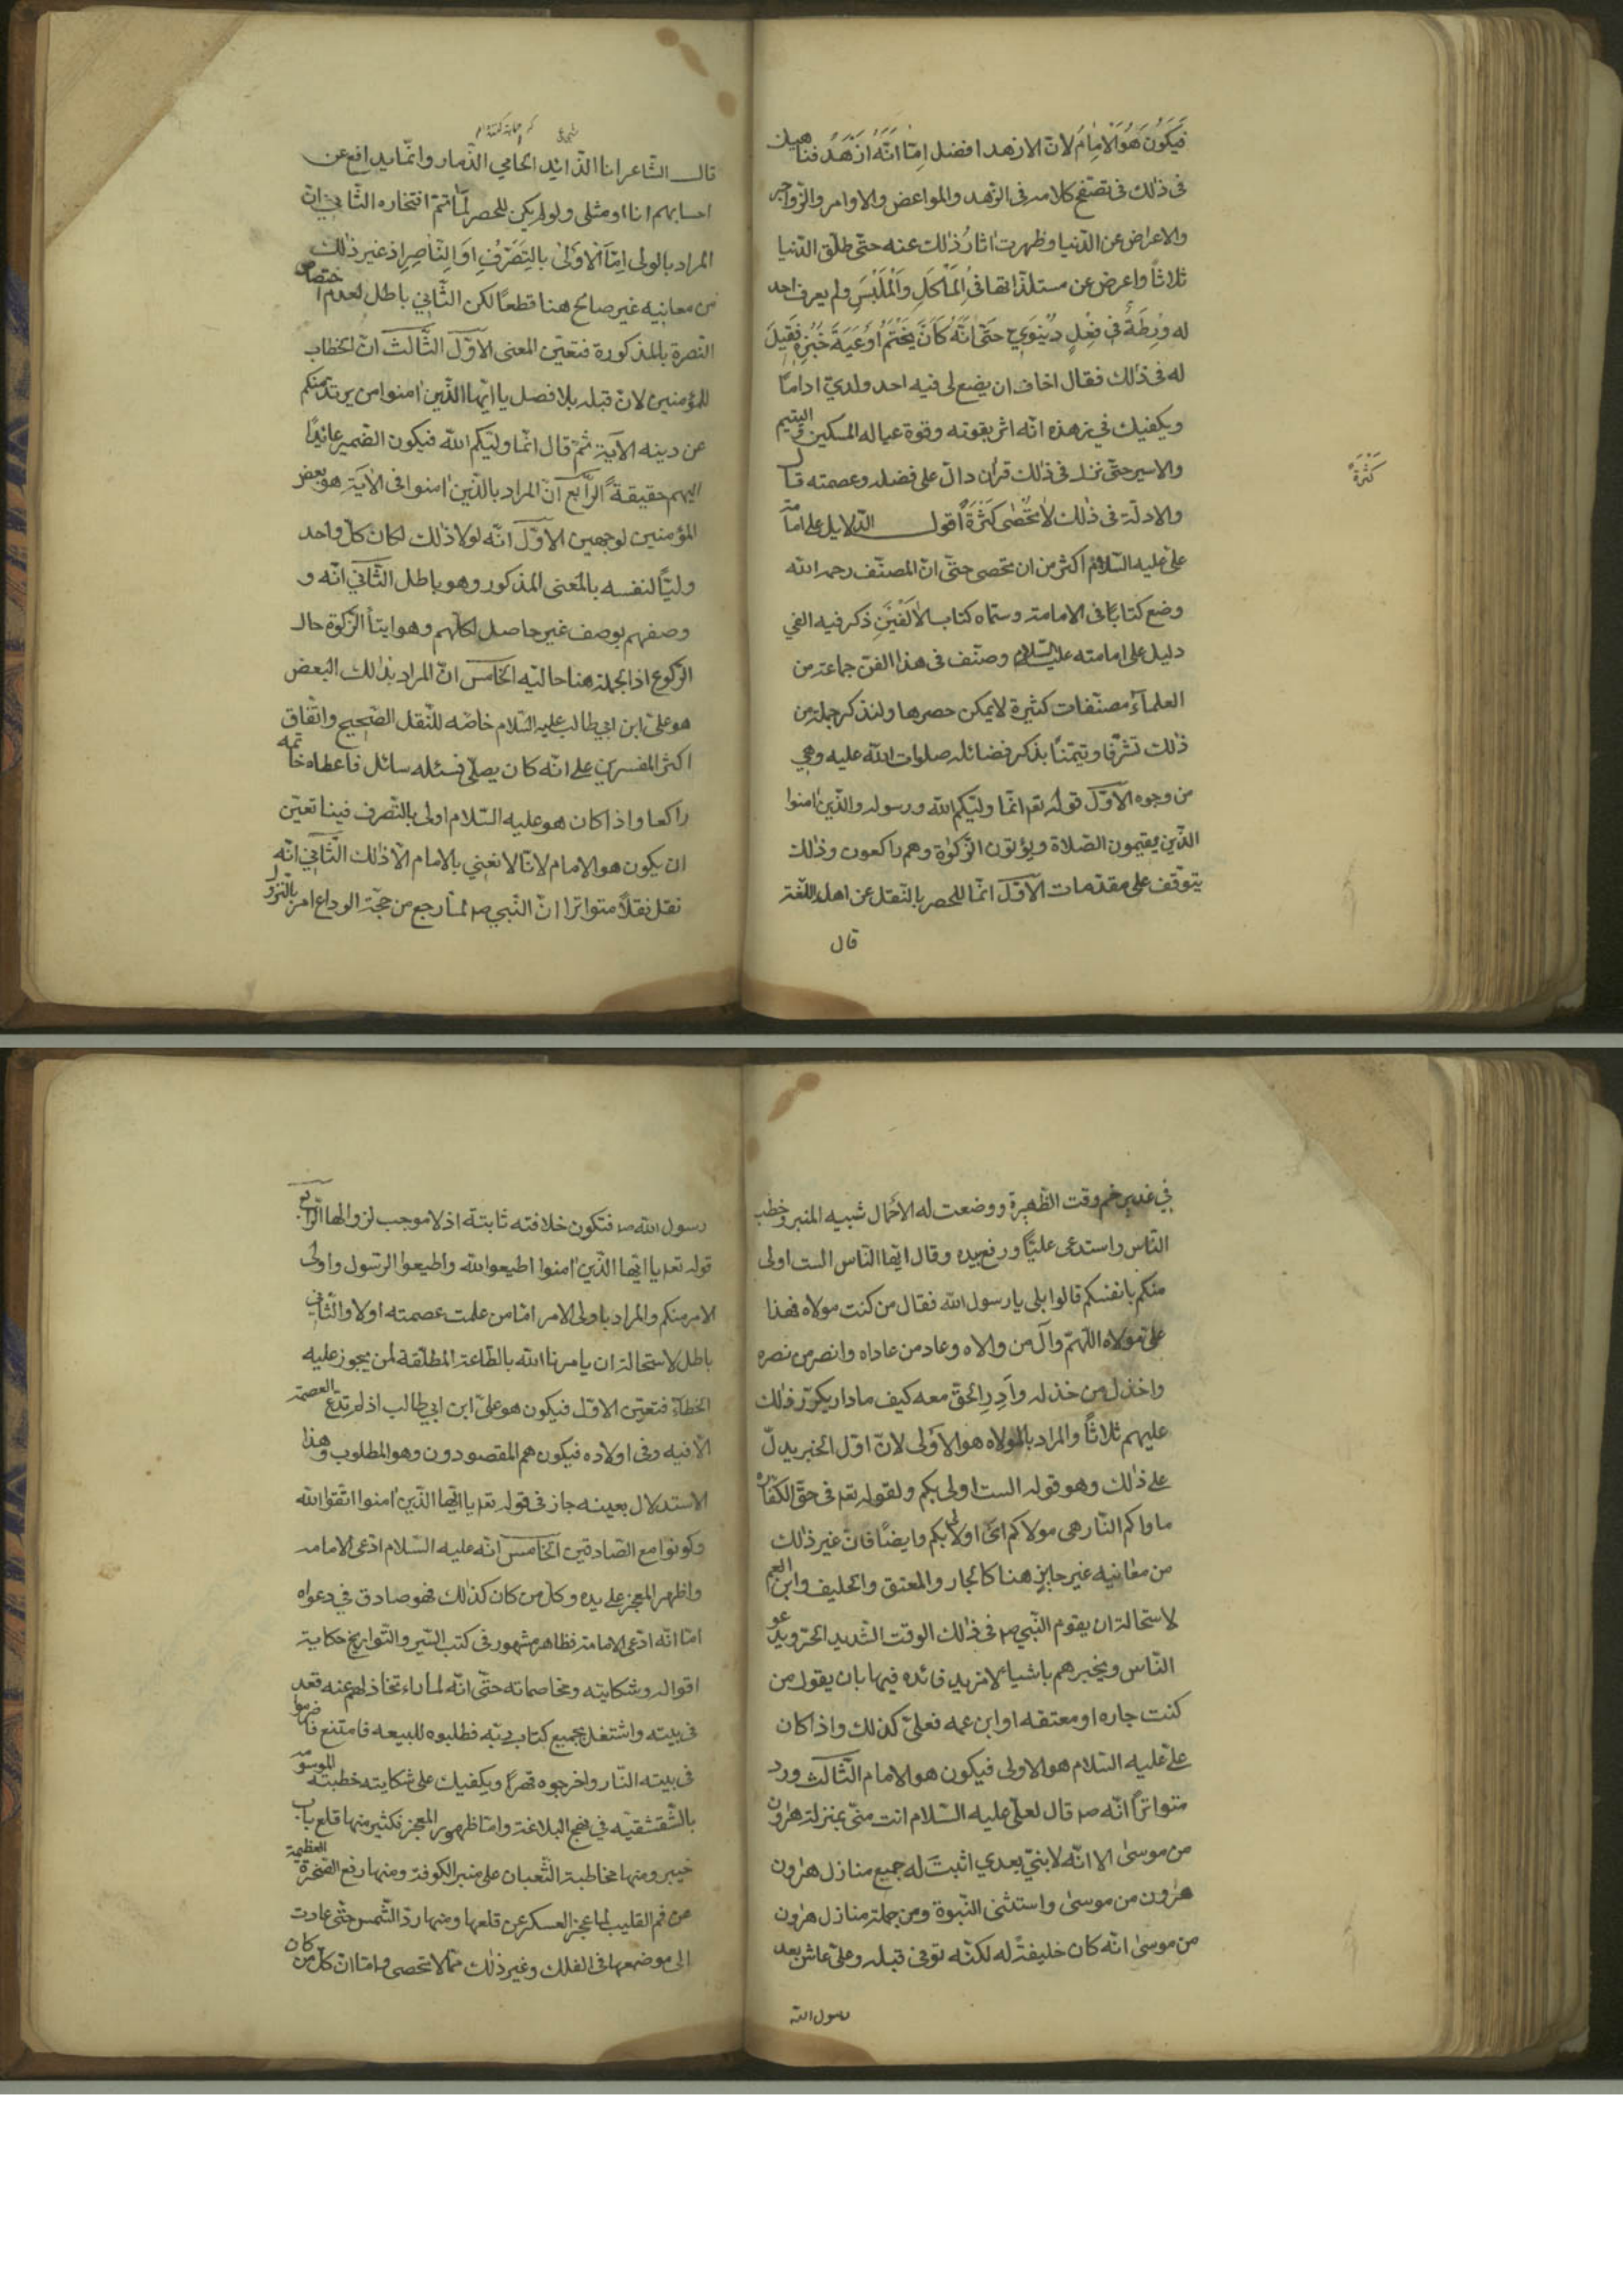 فَيَكُونُ هُوَ الْاِمَامُ لانّ الازهد افضل امّا اَنَّهُ اَزْهَدُ فناهيك
فى ذلك فى تصفح كلامه فى الزّهد والمواعض والاوامر والزّواجر
والاعراض عن الدّنيا وظهرت اثارُ ذٰلك عنه حتّى طلّق الدّنيا
ثلاثاً واعرض عن مستلذّاتها فِى الْمَاْكَلِ وَالْمَلْبَسِ ولم يعرف احد
له وَرِطَةً فى فِعْلٍ دُنْيَوِىٍّ حَتّٰى اَنَّهُ كَانَ يَخْتَمُ اَوْعِيَةَ خُبْزِهِ فَقِيلَ
له فى ذٰلك فقال اخاف ان يضع لى فيه احد ولدىّ اداماً
ويكفيك فى زهده انّه اثر بقوته وقوة عياله المسكين واليتيم
والاسير حتّى نزل فى ذلك قرآن دالّ على فضله وعصمته قال
والادلّة فى ذٰلك لا تُحْصٰى كَثْرَةً اقول الدّلايل على امامة
كَثْرَةً
علىّ عليه السّلام اكثر من ان تحصى حتّى انّ المصنّف رحمه الله
وضع كتاباً فى الامامة وسمّاه كتاب الاَلْفَيْنِ ذكر فيه الفى
دليل على امامته عليه السّلام وصنّف فى هذا الفنّ جماعة من
العلمآء مصنّفات كثيرة لا يمكن حصرها ولنذكر جملة من
ذٰلك تشرّفا وتيمّناً بذكر فضائله صلوات الله عليه وهى
من وجوه الاَوّل قوله تعـ انّما وليّكم الله ورسوله والّذين اٰمنوا
الّذين يقيمون الصّلاة ويؤتون الزّكوٰة وهم راكعون وذٰلك
يتوقّف على مقدّمات الاَوّل انّما للحصر بالنّقل عن اهل اللّغة
قال
قال الشّاعر انا الذّائد الحامي الذّمار وانّما يدافع عن
احسابهم انا او مثلى ولو لم يكن للحصر لما تمّ افتخاره الثّانى انّ
المراد بالولى اِمّا الْاَوْلٰى بِالتَّصَرُّفِ اَوِ النَّاصِرِ اذ غير ذٰلك
من معانيه غير صالح هنا قطعاً لكن الثّانى باطل لعدم اختصاص
النّصرة بالمذكورة فتعيّن المعنى الاَوّل الثّالث انّ الخطاب
للمؤمنين لانّ قبله بلا فصل يا ايّها الّذين اٰمنوا من يرتدّ منكم
عن دينه الآية ثمّ قال انّما وليّكم الله فيكون الضّمير عائداً
اليهم حقيقةً الرّابع انّ المراد بالّذين اٰمنوا فى الآية هو بعض
المؤمنين لوجهين الاَوّل انّه لولا ذٰلك لكان كلّ واحد
وليّاً لنفسه بالمعنى المذكور وهو باطل الثّانى انّه و
وصفهم بوصف غير حاصل لكلّهم وهو ايتآ الزّكوة حال
الرّكوع اذ الجملة هنا حاليّه الخامس انّ المراد بذٰلك البعض
هو علىّ ابن ابى طالب عليه السّلام خاصّه للنّقل الصّحيح واتّفاق
اكثر المفسرين على انّه كان يصلّى فسئله سائل فاعطاه خاتمه
راكعا واذا كان هو عليه السّلام اولى بالتّصرف فينا تعيّن
ان يكون هو الامام لانّا لا نعنى بالامام الّا ذٰلك الثّانى انّه
نقل نقلاً متواترا انّ النّبى صـ لمّا رجع من حجّة الوداع امر بالنّزول
فى غدير خم وقت الظّهيرة ووضعت له الاحمال شبيه المنبر وخطب
النّاس واستدعى عليّاً ورفع بيده وقال ايّها النّاس الست اولى
منكم بانفسكم قالوا بلى يا رسول الله فقال من كنت مولاه فهذا
علىّ مولاه اللّهمّ وآل من والاه وعاد من عاداه وانصر من نصره
واخذل من خذله وأدر الحقّ معه كيف ما دار يكرّر ذٰلك
عليهم ثلاثاً والمراد بالمولاه هو الاَولى لانّ اوّل الخبر يدلّ
على ذٰلك وهو قوله الست اولى بكم ولقوله تعـ فى حقّ الكفّار
ماواكم النّار هى مولاكم اى اولى بكم وايضاً فانّ غير ذٰلك
من معانيه غير جايز هنا كالجار والمعتق والحليف وابن العم
لاستحالة ان يقوم النّبى صـ فى ذٰلك الوقت الشّديد الحرّ ويدعو
النّاس ويخبرهم باشياء لا مزيد فائده فيها بان يقول من
كنت جاره او معتقه او ابن عمه فعلىّ كذلك واذا كان
علىّ عليه السّلام هو الاولى فيكون هو الامام الثّالث ورد
متواتراً انّه صـ قال لعلىّ عليه السّلام انت منّى بمنزلة هٰرون
من موسىٰ الا انّه لا نبىّ بعدى اثبت له جميع منازل هٰرون
هٰرون من موسىٰ واستثنى النّبوة ومن جملة منازل هٰرون
من موسىٰ انّه كان خليفةً له لكنّه توفى قبله وعلىّ عاش بعد
رسول الله
رسول الله صـ فتكون خلافته ثابتة اذ لا موجب لزوالها الرّابع
قوله تعـ يا ايّها الّذين اٰمنوا اطيعوا الله واطيعوا الرّسول واولى
الامر منكم والمراد باولى الامر امّا من علمت عصمته او لا والثّانى
باطل لاستحالة ان يامرنا الله بالطّاعة المطلقة لمن يجوز عليه
الخطآء فتعيّن الاوّل فيكون هو علىّ ابن ابى طالب اذ لم تدّع العصمة
الّا فيه وفى اولاده فيكون هم المقصودون وهو المطلوب وهذا
الاستدلال بعينه جاز فى قوله تعـ يا ايّها الّذين اٰمنوا اتّقوا الله
وكونوا مع الصّادقين الخامس انّه عليه السّلام ادّعى الامامه
واظهر المعجز على يده وكلّ من كان كذٰلك فهو صادق فى دعواه
امّا انّه ادّعى الامامة فظاهر مشهور فى كتب السّير والتّواريخ حكاية
اقواله وشكايته ومخاصماته حتّى انّه لما راء تخاذلهم عنه قعد
فى بيته واشتغل بجميع كتاب ربّه فطلبوه للبيعه فامتنع فاضرموا
فى بيته النّار واخرجوه قهراً ويكفيك على شكايته خطبته الموسومة
بالشّقشقيّه فى نهج البلاغة وامّا ظهور المعجز فكثير منها قلع باب
خيبر ومنها مخاطبة الثّعبان على منبر الكوفة ومنها رفع الصّخرة العظيمة
عن فم القليب لما عجز العسكر عن قلعها ومنها ردّ الشّمس حتّى عادت
الى موضعها فى الفلك وغير ذٰلك ممّا لا تحصى وامّا انّ كلّ من كان